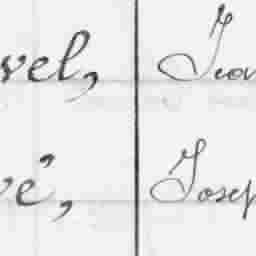 vel, Jean
vé, Josep